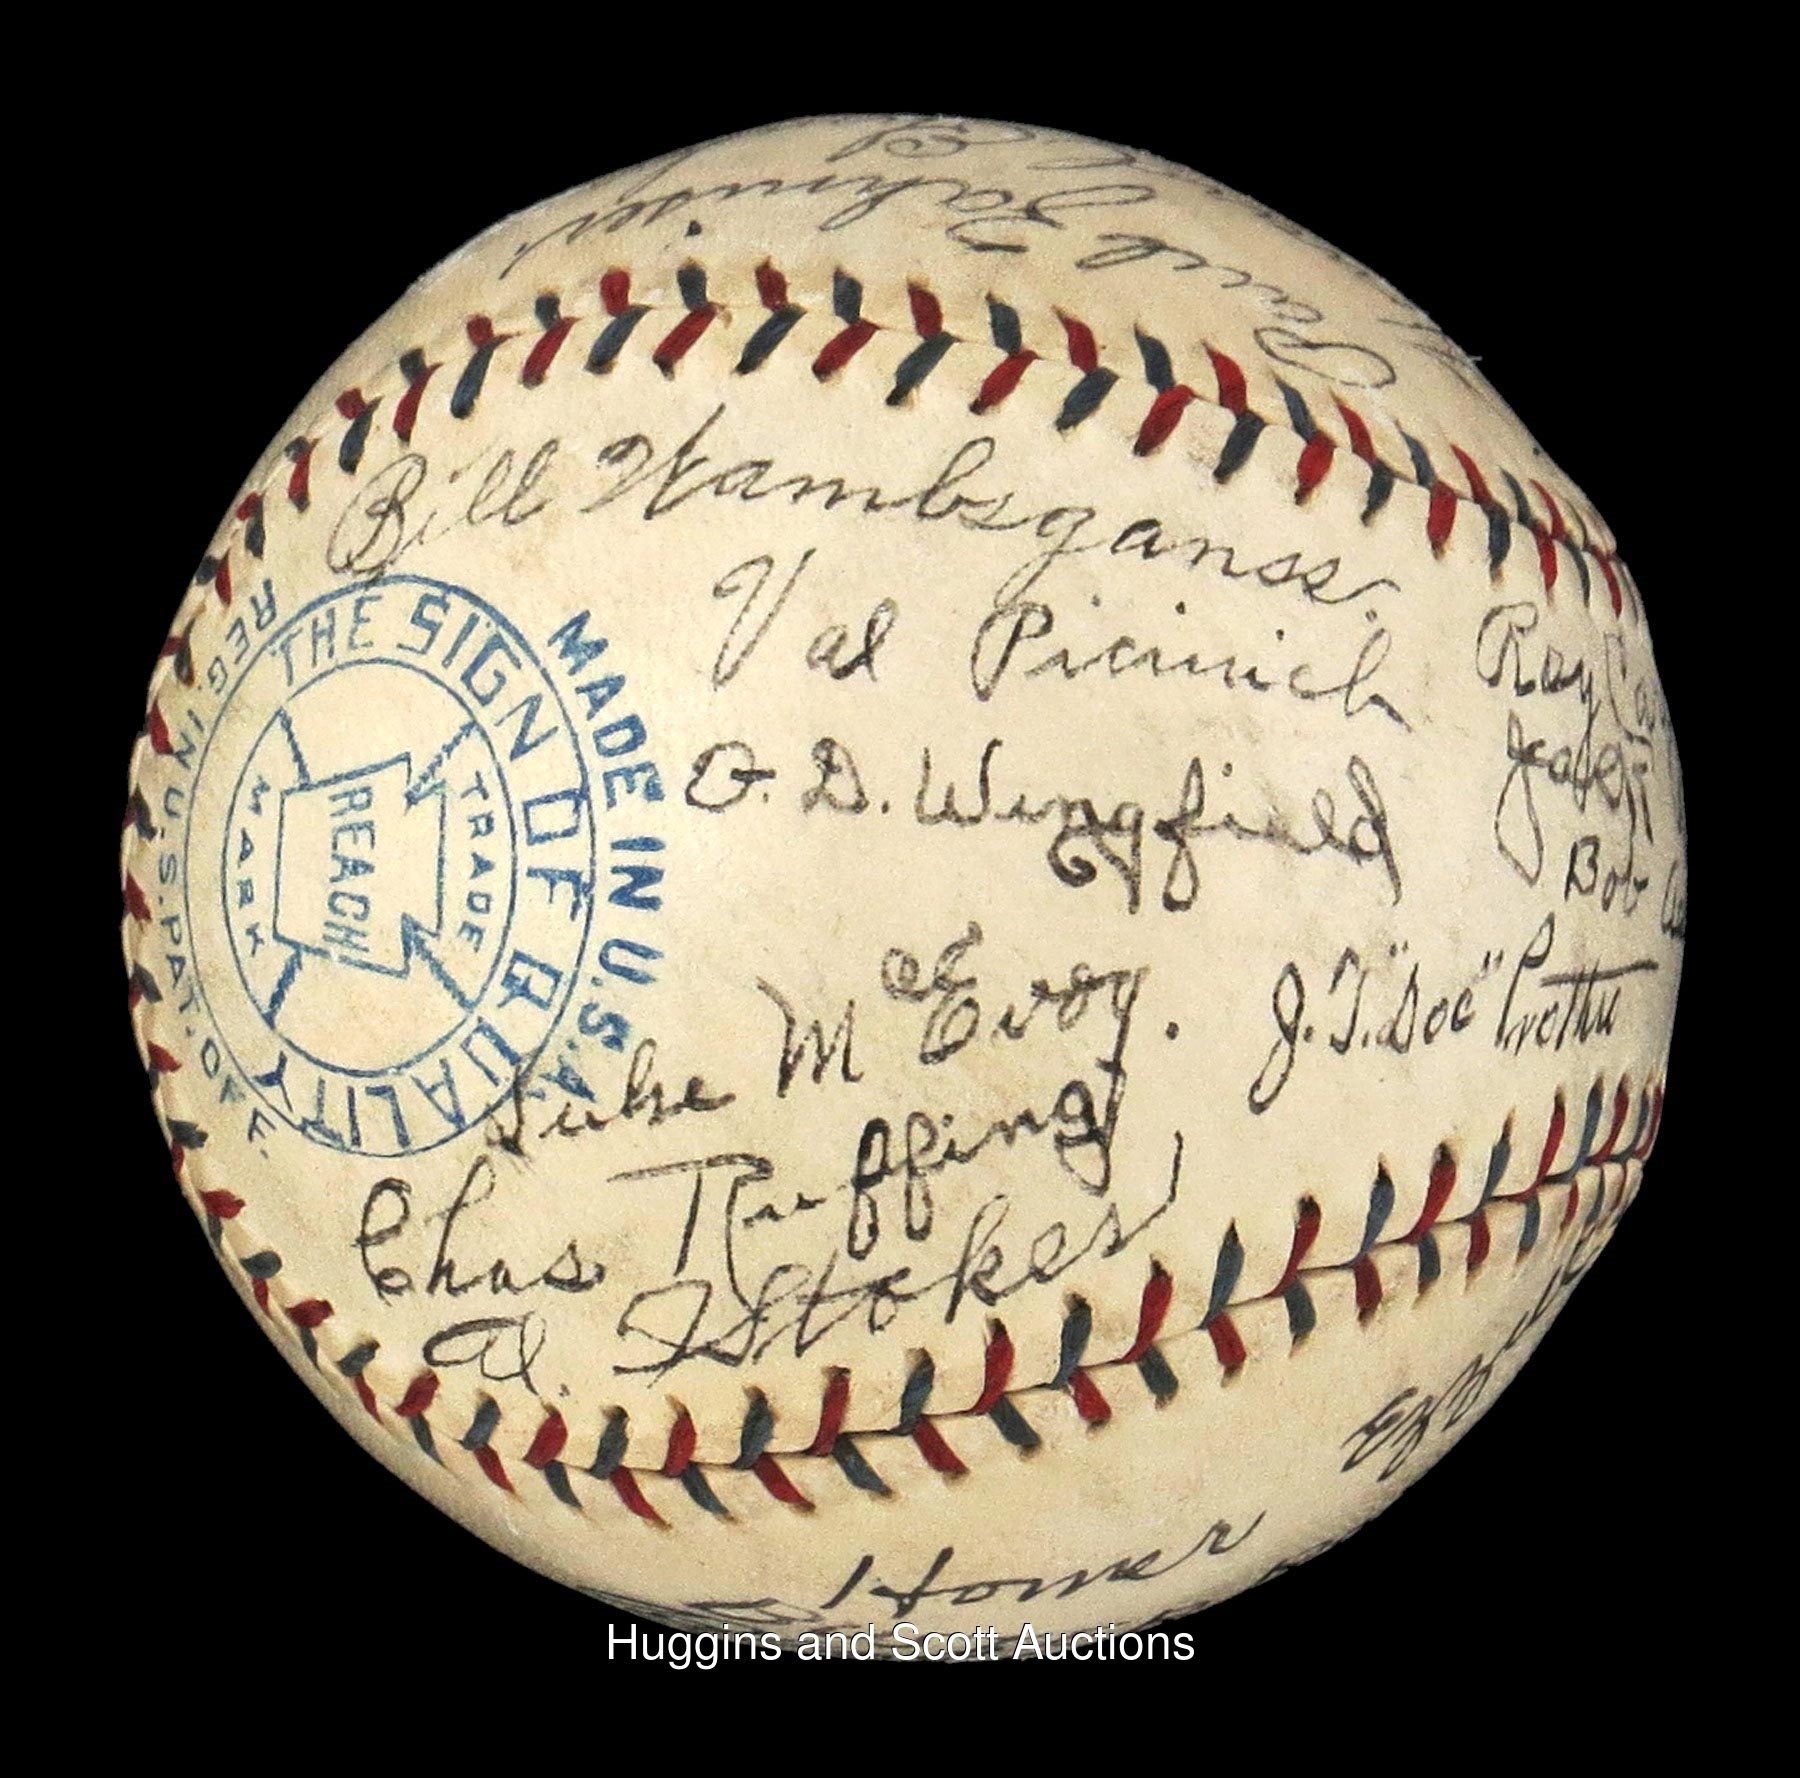 Paul Zahniser
Bill Wambsganss.
Val Picinich
Ray
O. D. Wingfield
Bob
Luke McEvoy.
J. T. "Doc" Prothro
Chas Ruffing
Al. Stokes
Homer
THE SIGN OF QUALITY
REACH
TRADE MARK
MADE IN U.S.A.
REG. IN U.S. PAT. OFF.
Huggins and Scott Auctions